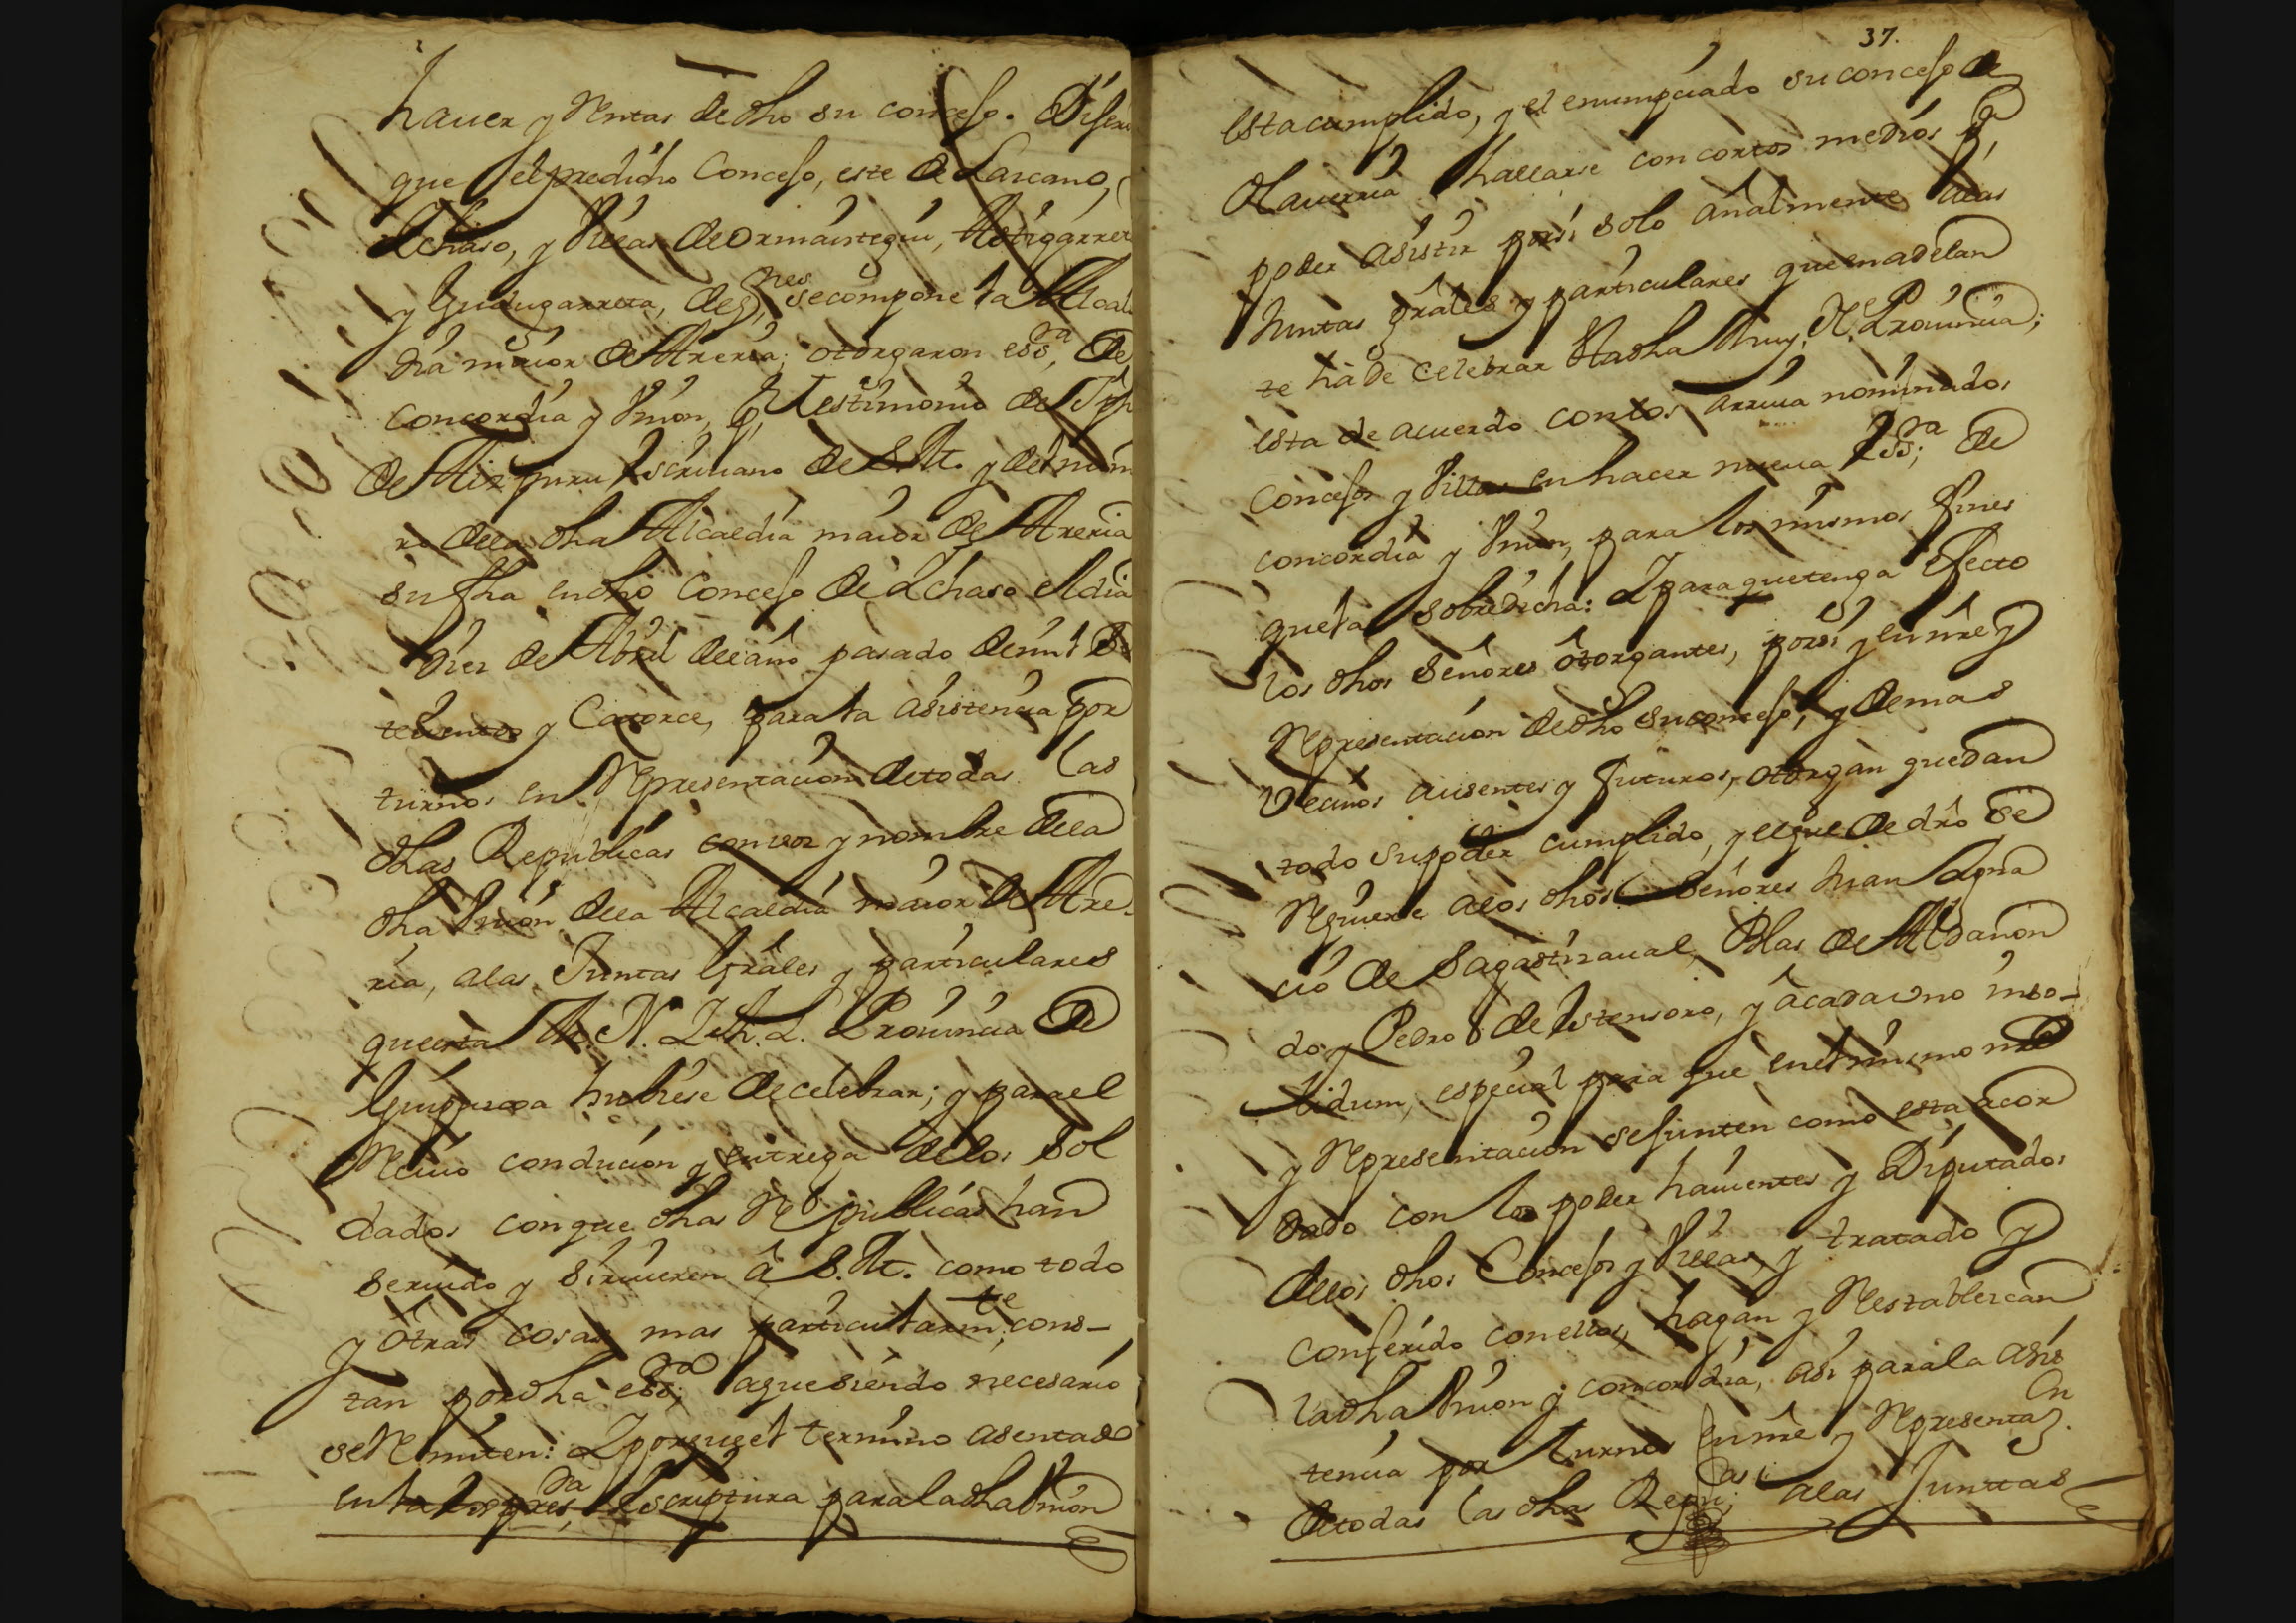 hauer y Rentas de dho su concejo. Dijeron
que el predicho Concejo, este de Lazcano,
Ichaso, y Villas de Ormaiztegui, Astigarreta
y Gudugarreta, de q.nes se compone la Alcal
dia maior de Areria; otorgaron ess.ra de
concordia y Vnion, p.r testimonio de Jph
de Aizpuru Escriuano de S.M. y del nume
ro de la dha Alcaldia maior de Areria
su fha en dho Concejo de Ichaso el dia
diez de Abril del año pasado de mil Se
tecientos y Catorce, para la asistencia por
turnos en Representacion de todas las
dhas Republicas con voz y nombre de la
dha Vnion de la Alcaldia maior de Are-
ria, a las Juntas Grâles y particulares
que esta M. N. Y M. L. Prouincia de
Guipuzcoa hubiese de celebrar; y para el
Reciuo conducion y entrega de los Sol
dados con que dhas Republicas han
seruido y siruieren â S.M. como todo
y ôtras cosas mas particularm.te cons-
tan por dha ess.ra a que siendo necesario
se Remiten: Y por que el termino asentado
en la Escriptura para la dha Vnion
37.
esta cumplido, y el enumpciado su concejo de
Olauerria hallarse con cortos medios p.a
poder asistir por si solo anâlmente a las
Juntas grâles y particulares que en adelan
te ha de celebrar esta dha Muy. N. Prouincia;
esta de acuerdo con los arriua nominados
Concejos y Villas en hacer nueua Ess.ra de
concordia y Vnion, para los mismos fines
que la sobredicha: Y para que tenga efecto
los dhos Señores ôtorgantes, por si y en nre y
Representacion de dho su concejo, y demas
Vecinos ausentes y futuros, otorgan que dan
todo su poder cumplido, y el que de drô se
Requiere a los dhos Señores Juan Igna
cio de Sagastizaual, Blas de Aldanon
do y Pedro de Estensoro, y â cada vno inso-
lidum, especial para que en el mismo nre
y Representacion se junten como esta acor
dado con los poder hauientes y Diputados
de los dhos Concejos y Villas, y tratado y
conferido con ellos, hagan y Restablezcan
la dha Vnion y concordia, asi para la asis
tencia por turnos en nrê y Representaz.on
de todas las dhas Repu.cas a las Junttas